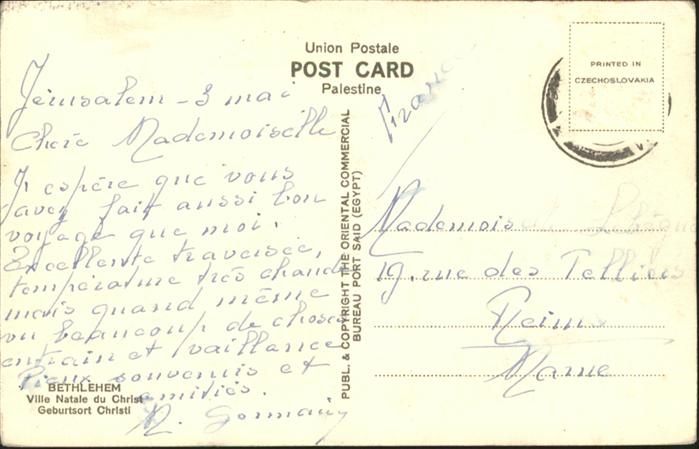 Union Postale
POST CARD
Palestine
PRINTED IN
CZECHOSLOVAKIA
Jérusalem - 3 mai
Chère Mademoiselle
J'espère que vous
avez fait aussi bon
voyage que moi.
Excellente traversée,
température très chaude
mais quand même
vu beaucoup de choses
entrain et vaillance
Pieux souvenirs et
amitiés.
BETHLEHEM
Ville Natale du Christ
Geburtsort Christi
PUBL. & COPYRIGHT THE ORIENTAL COMMERCIAL
BUREAU PORT SAID (EGYPT)
France
Mademoiselle
19, rue des Telliers
Reims
Marne